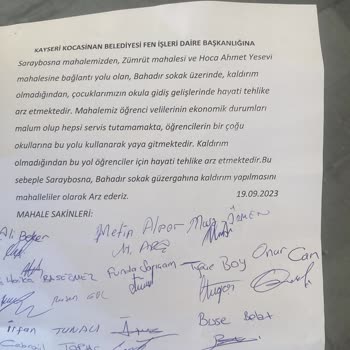 KAYSERİ KOCASİNAN BELEDİYESİ FEN İŞLERİ DAİRE BAŞKANLIĞINA
Saraybosna mahalemizden, Zümrüt mahalesi ve Hoca Ahmet Yesevi
mahalesine bağlantı yolu olan, Bahadır sokak üzerinde, kaldırım
olmadığından, çocuklarımızın okula gidiş gelişlerinde hayati tehlike
arz etmektedir. Mahalemiz öğrenci velilerinin ekonomik durumları
malum olup hepsi servis tutamamakta, öğrencilerin bir çoğu
okullarına bu yolu kullanarak yaya gitmektedir. Kaldırım
olmadığından bu yol öğrenciler için hayati tehlike arz etmektedir.Bu
sebeple Saraybosna, Bahadır sokak güzergahına kaldırım yapılmasını
mahalleliler olarak Arz ederiz. 19.09.2023
MAHALE SAKİNLERİ:
Ali Metin Alper
Boy Onur Can
İrfan TUNALI Buse Bolat